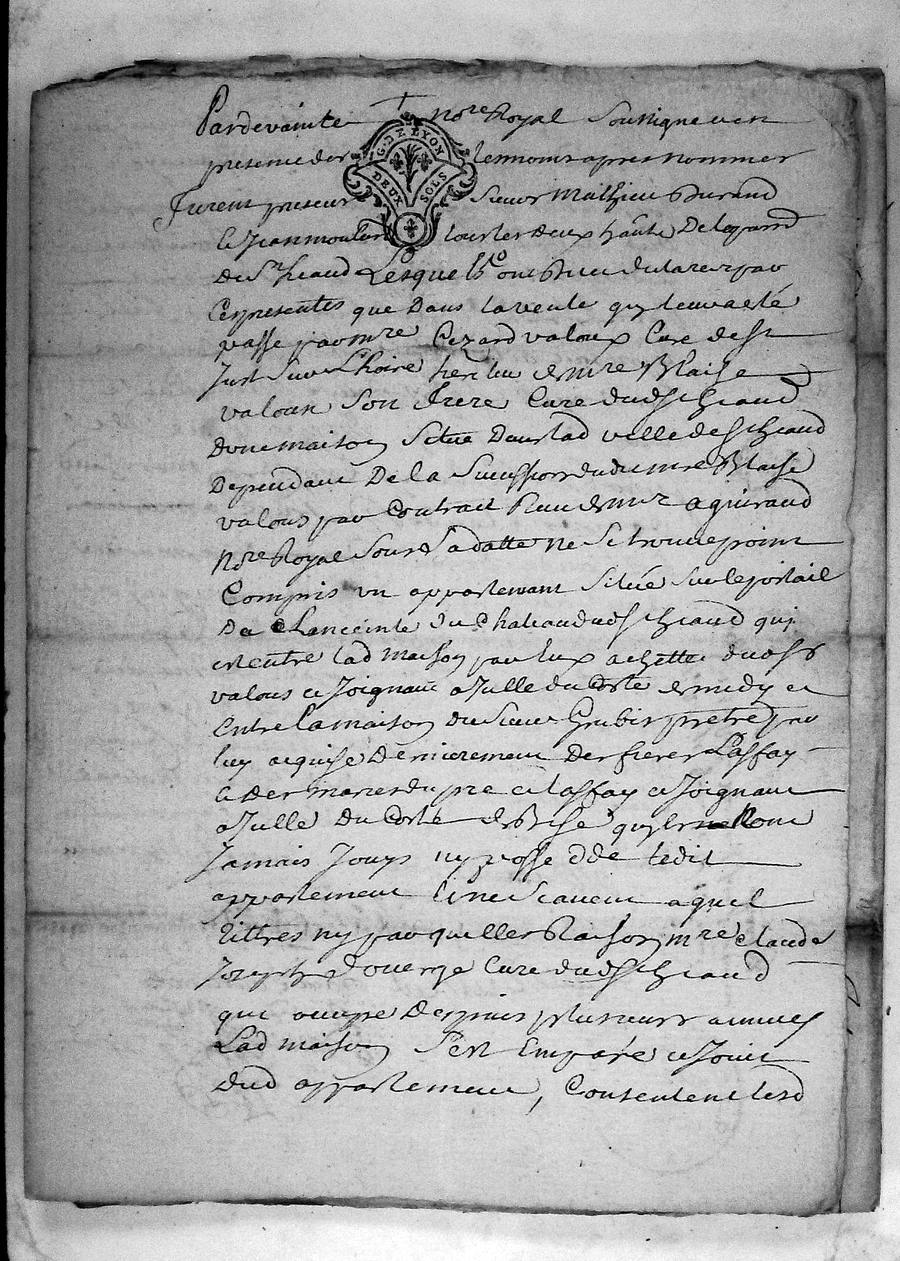 Pardevant le notre Royal soussigne et en
G. DE LYON
DEUX SOLS
presence des temoins apres nommes
furent presents Sieur Mathieu Durand
et Jean moulard tous les deux hatts De
De St heand Lesquels ont declarer par
Ces presentes que Dans la vente qui leur a eté
passe par mre Cezard valoux Cure de St
Just Sur Lhoire her mre Blaise
valoux Son frere Cure dud St heand
Dune maison Situé Dans lad ville de St heand
Dependant De la Succession dudit mre Blaise
valous par Contrait Receu de mr aguiraud
notre Royal Sous Sa datte ne Se trouve point
Compris un appartement Situé Sur le portail
De Lanceinte du Chateau dud St heand qui
est entre lad maison par eux achettée dud Sr
valous et Joignant a Jcelle du Coste de midy et
Entre la maison du Sieur prêtre par
luy acquise Dernierement Des freres Laffay
et Des maries dupre et laffay et Joignant
a Jcelle Du Costé de Bise quils nont
Jamais Jouys ny possedde ledit
appartement et ne Scavent a quel
tittres ny par quelles Raison mre claude
Joseph Cure dud St heand
qui occupe Depuis plusieurs annees
Lad maison S'est Emparé et Jouit
dud appartement, Consentent lesd